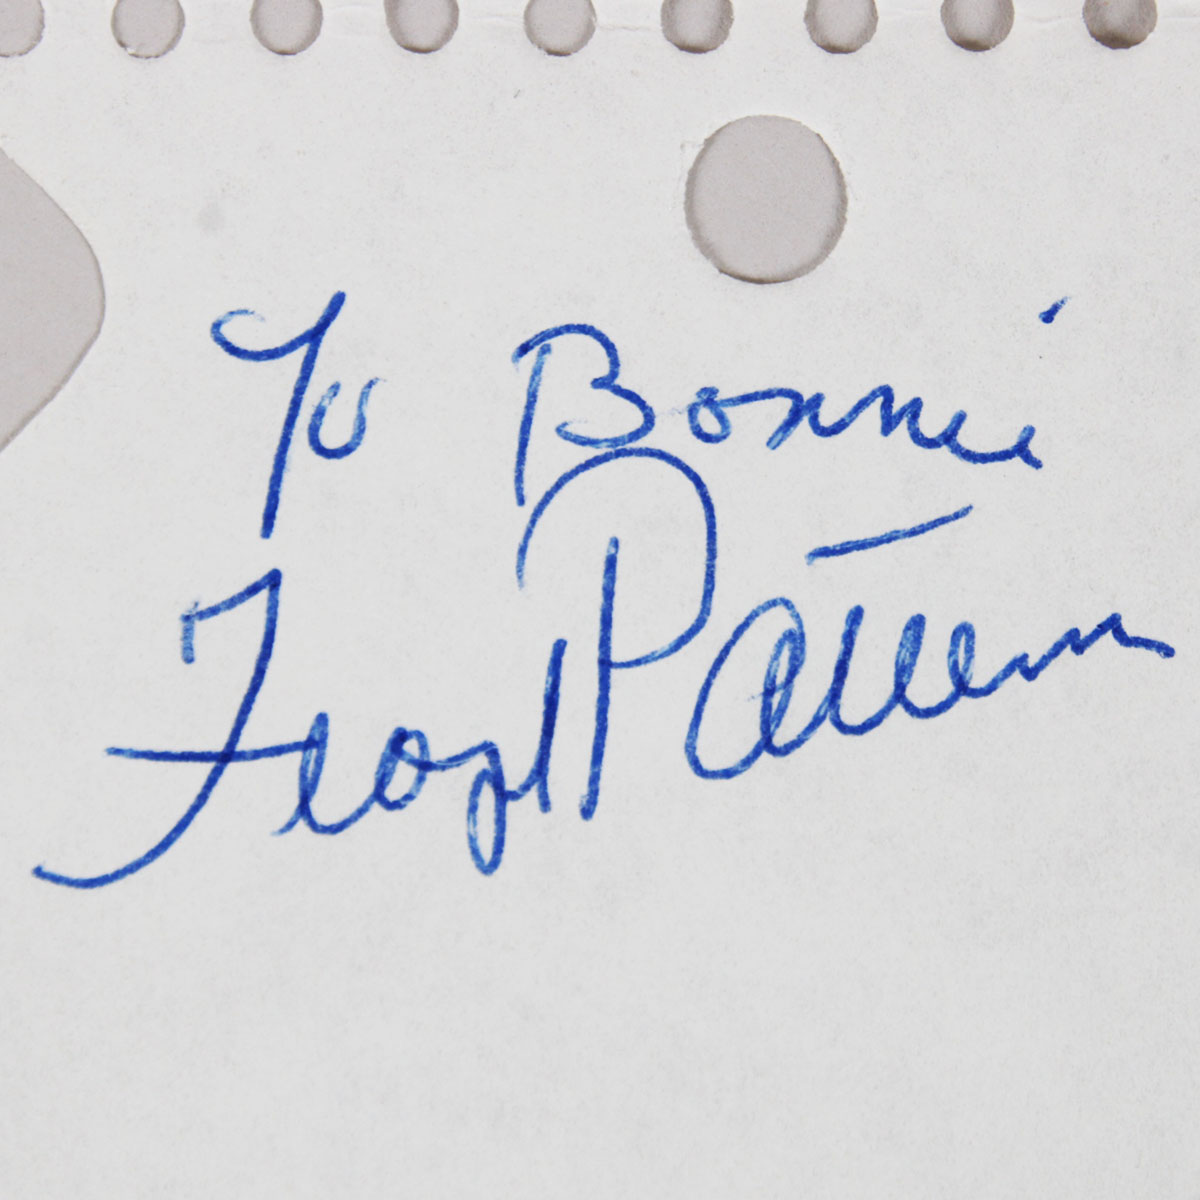 To Bonnie
Floyd Patterson